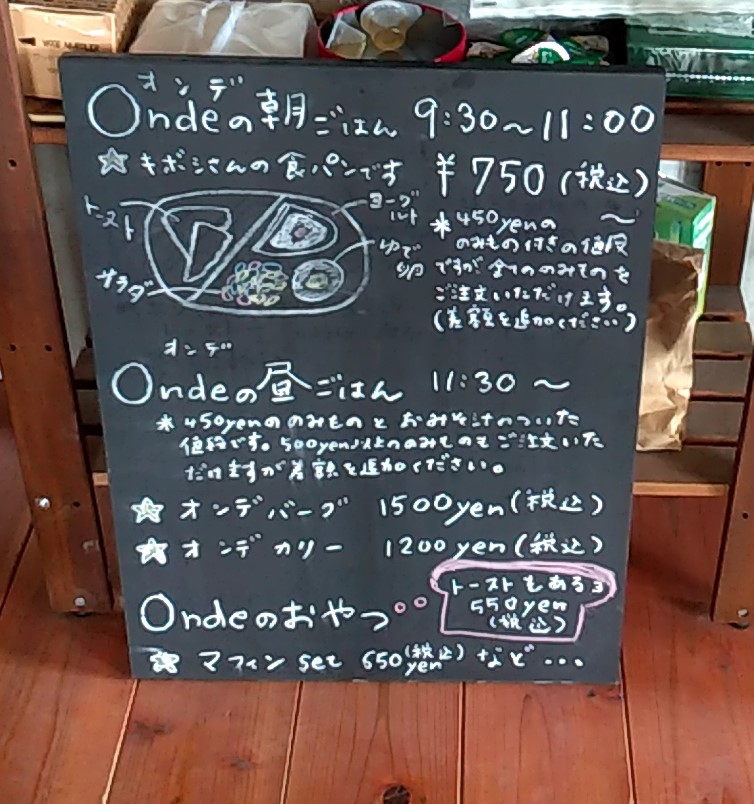 オンデ
Ondeの朝ごはん 9:30〜11:00
☆キボシさんの食パンです ¥750(税込)〜
トースト
ヨーグルト
ゆで卵
サラダ
*450yenの
のみもの付きの値段
ですが全てののみものを
ご注文いただけます。
(差額を追加ください)
オンデ
Ondeの昼ごはん 11:30〜
*450yenののみものとおみそ汁のついた
値段です。500yen以上ののみものもご注文いた
だけますが差額を追加ください。
☆オンデバーグ 1500yen(税込)
☆オンデカリー 1200yen(税込)
トーストもあるョ
550yen
(税込)
Ondeのおやつ
☆マフィンset 650yen(税込)など...